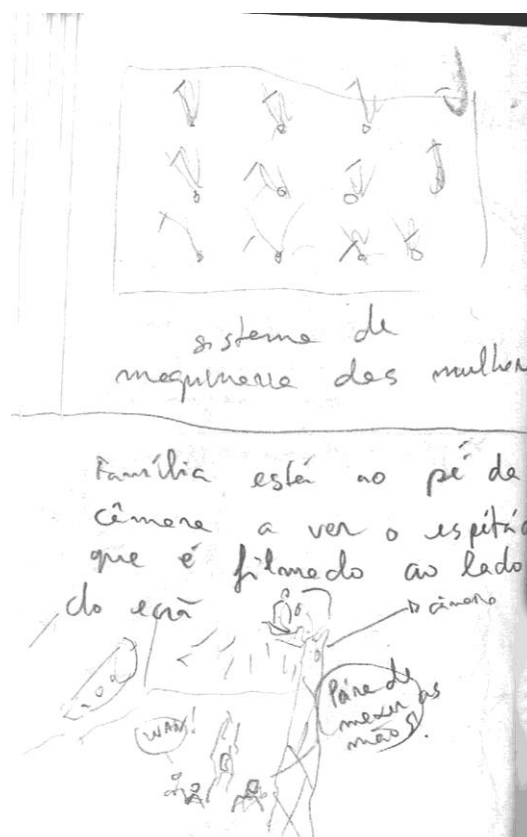 sistema de
maquinaria das mulher
Família está ao pé da
câmara a ver o
que é filmado ao lado
do ecrã
câmara
Pára de
mexer as
mãos!